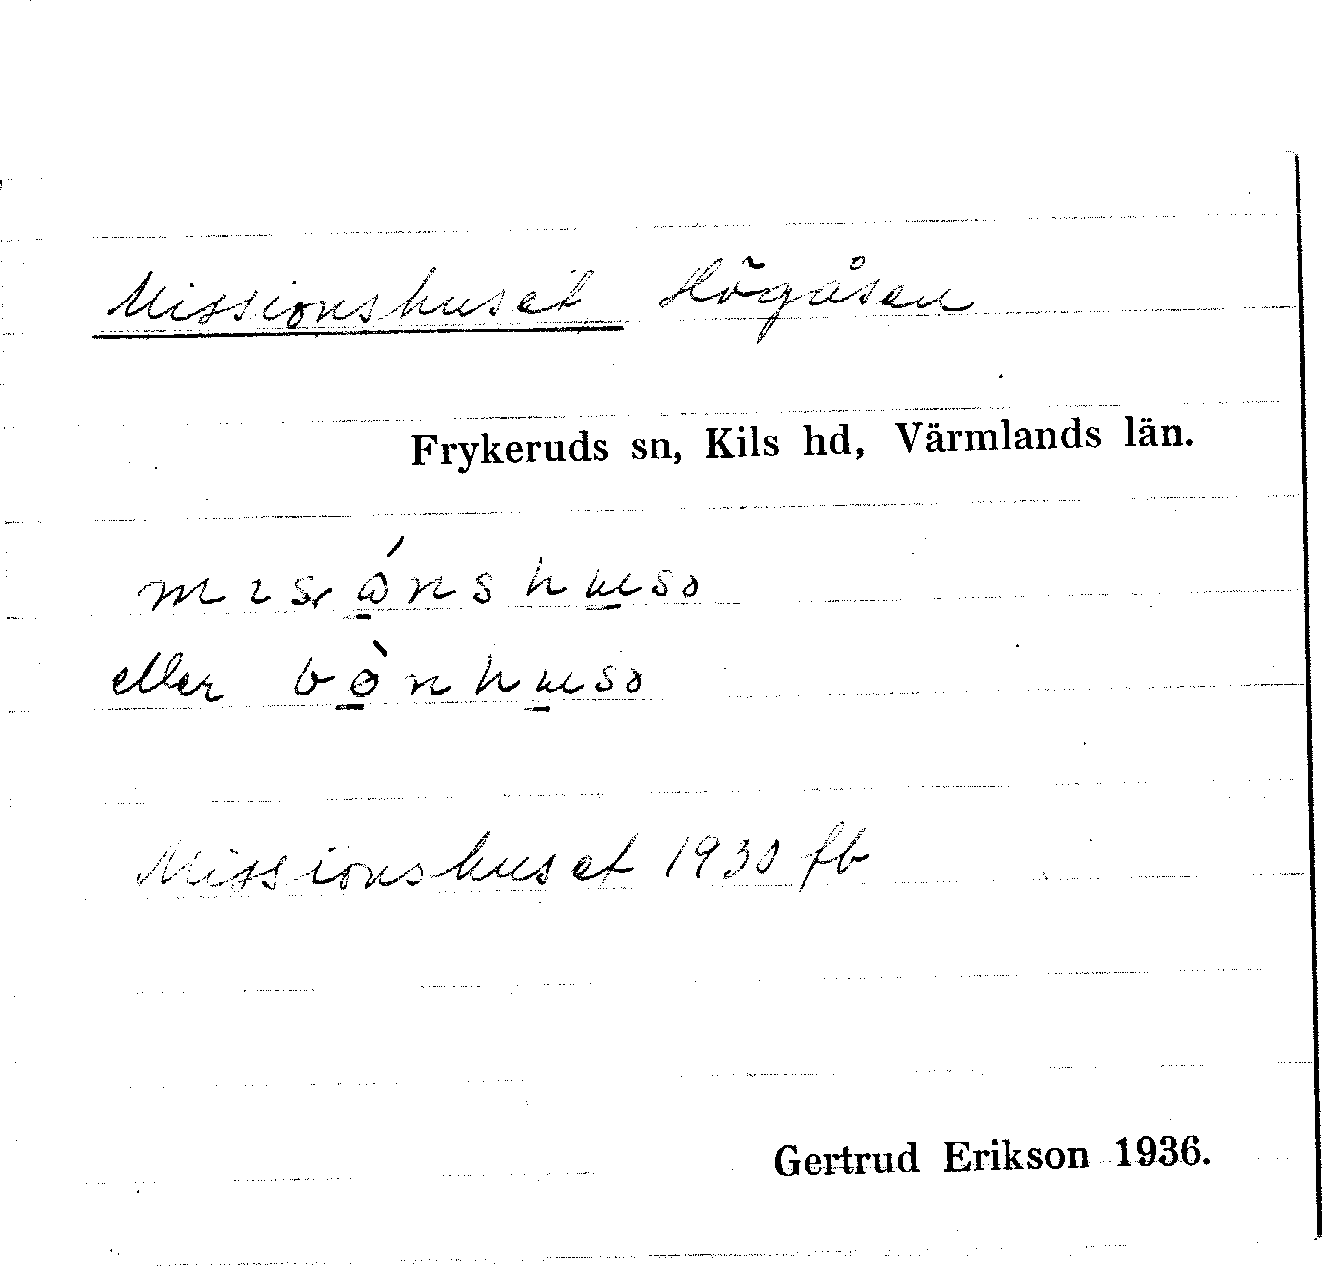 Missionshuset Högåsen
Frykeruds sn, Kils hd, Värmlands län.
eller
Missionshuset 1930 fb
Gertrud Erikson 1936.